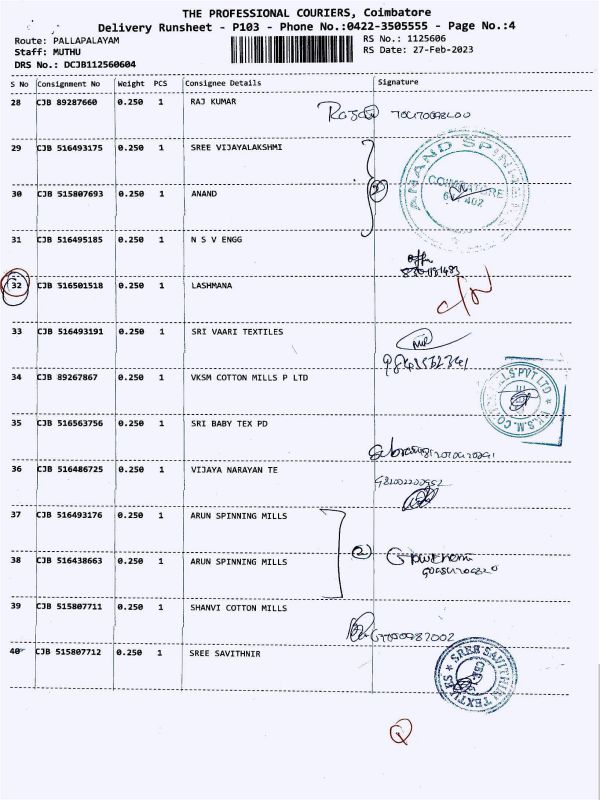 THE PROFESSIONAL COURIERS, Coimbatore
Delivery Runsheet - P103 - Phone No.:0422-3505555 - Page No.:4
Route: PALLAPALAYAM
RS No.: 1125606
Staff: MUTHU
RS Date: 27-Feb-2023
DRS No.: DCJB112560604
S No Consignment No Weight PCS Consignee Details Signature
28 CJB 89287660 0.250 1 RAJ KUMAR
29 CJB 516493175 0.250 1 SREE VIJAYALAKSHMI
ANAND SPIN
COIMBATORE
30 CJB 515807693 0.250 1 ANAND
31 CJB 516495185 0.250 1 N S V ENGG
32 CJB 516501518 0.250 1 LASHMANA
C/N
33 CJB 516493191 0.250 1 SRI VAARI TEXTILES
34 CJB 89267867 0.250 1 VKSM COTTON MILLS P LTD
35 CJB 516563756 0.250 1 SRI BABY TEX PD
36 CJB 516486725 0.250 1 VIJAYA NARAYAN TE
37 CJB 516493176 0.250 1 ARUN SPINNING MILLS
2
38 CJB 516438663 0.250 1 ARUN SPINNING MILLS
39 CJB 515807711 0.250 1 SHANVI COTTON MILLS
40 CJB 515807712 0.250 1 SREE SAVITHNIR
SREE SAVITHIRI TEXTILES